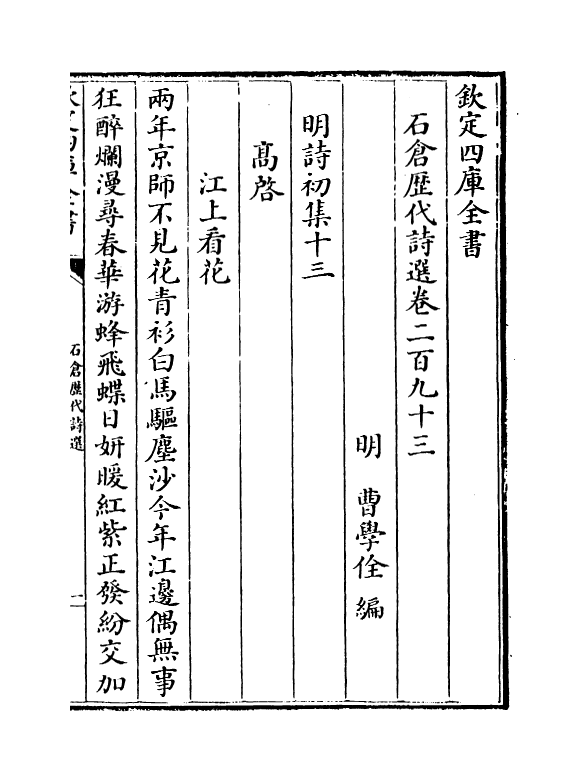 欽定四庫全書
石倉歷代詩選卷二百九十三
明 曹學佺 編
明詩初集十三
高啓
江上看花
兩年京師不見花青衫白馬驅塵沙今年江邊偶無事
狂醉爛漫尋春華游蜂飛蝶日妍暖紅紫正發紛交加
欽定四庫全書
石倉歷代詩選
一